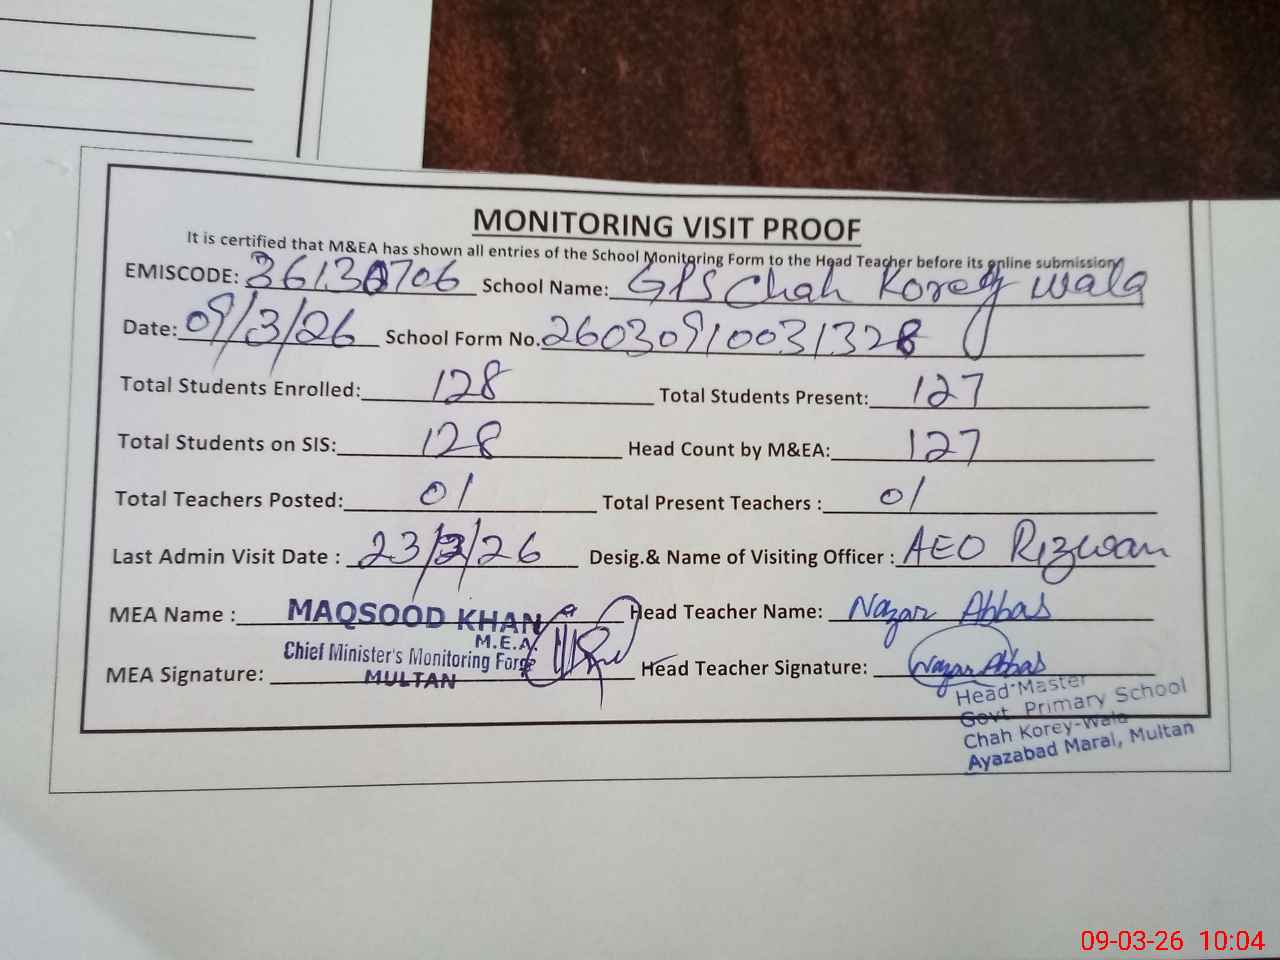 MONITORING VISIT PROOF
It is certified that M&EA has shown all entries of the School Monitoring Form to the Head Teacher before its online submission
EMISCODE: 36130706 School Name: GPS Chah Korey wala
Date: 09/3/26 School Form No. 26030910031328
Total Students Enrolled: 128 Total Students Present: 127
Total Students on SIS: 128 Head Count by M&EA: 127
Total Teachers Posted: 01 Total Present Teachers : 01
Last Admin Visit Date : 23/2/26 Desig.& Name of Visiting Officer : AEO Rizwan
MEA Name : MAQSOOD KHAN Head Teacher Name: Nazar Abbas
M.E.A.
Chief Minister's Monitoring Force
MEA Signature: MULTAN Head Teacher Signature: Nazar Abbas
Head Master
Govt. Primary School
Chah Korey-Wala
Ayazabad Maral, Multan
09-03-26 10:04